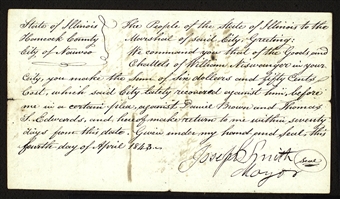 State of Illinois
Hancock County
City of Nauvoo
The People of the State of Illinois to the
Marshal of said City, Greeting:
We command you that of the Goods and
Chattels of William Niswanger in your
City, you make the Sum of Six dollars and fifty Cents
Cost, which said City lately recovered against him, before
me in a certain plea, against Daniel Brown and Thomas
J. Edwards, and hereof make return to me within seventy
days from this date. Given under my hand and seal, this
fourth day of April 1843.
Joseph Smith
Mayor
Seal